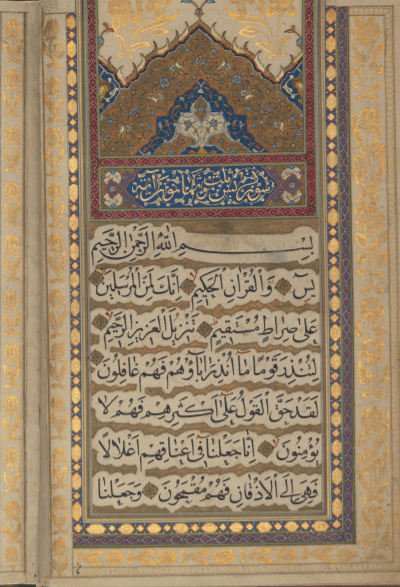 سورة يس ثلث وثمانون آية
بِسْمِ اللّٰهِ الرَّحْمٰنِ الرَّحِيمِ
يٰسٓ وَالْقُرْاٰنِ الْحَكِيمِ اِنَّكَ لَمِنَ الْمُرْسَلِينَ
عَلىٰ صِرَاطٍ مُسْتَقِيمٍ تَنْزِيلَ الْعَزِيزِ الرَّحِيمِ
لِتُنْذِرَ قَوْمًا مَا اُنْذِرَ اٰبَاؤُهُمْ فَهُمْ غَافِلُونَ
لَقَدْ حَقَّ الْقَوْلُ عَلىٰ اَكْثَرِهِمْ فَهُمْ لَا
يُؤْمِنُونَ اِنَّا جَعَلْنَا فِي اَعْنَاقِهِمْ اَغْلَالًا
فَهِيَ اِلَى الْاَذْقَانِ فَهُمْ مُقْمَحُونَ وَجَعَلْنَا